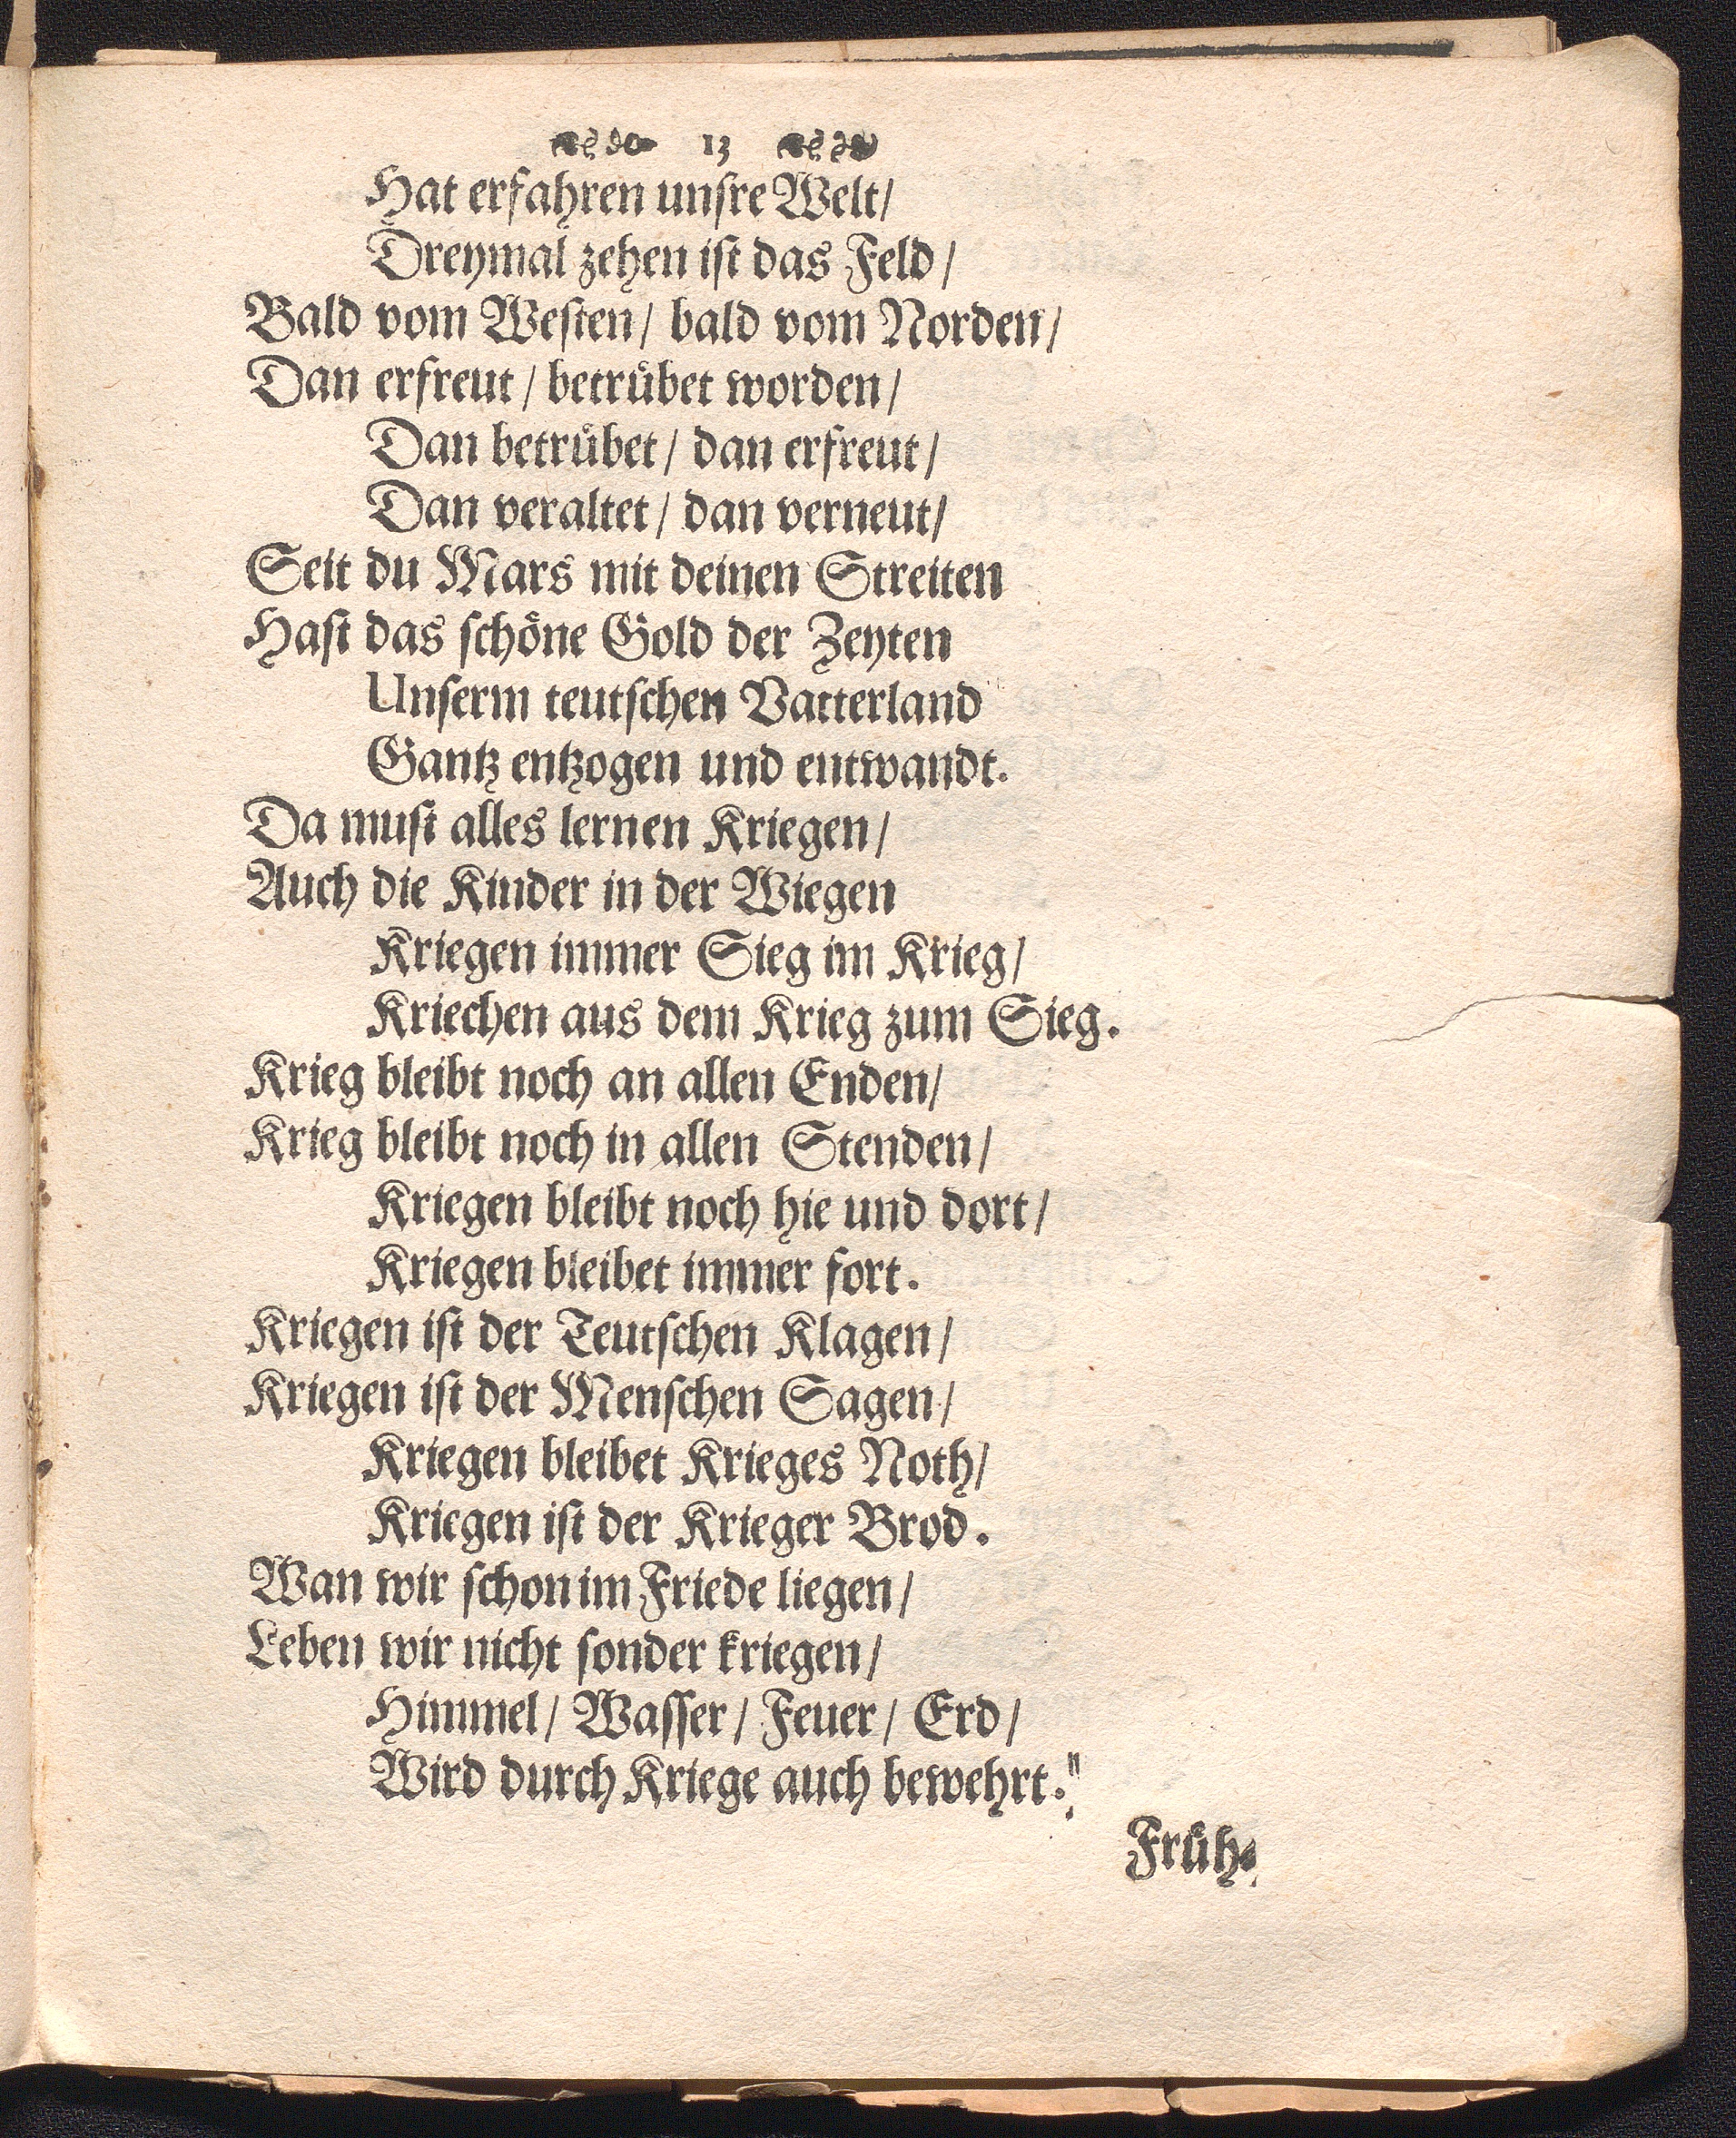 13
Hat erfahren unſre Welt/
Dreymal zehen iſt das Feld/
Bald vom Weſten/ bald vom Norden/
Dan erfreut/ betruͤbet worden/
Dan betruͤbet/ dan erfreut/
Dan veraltet/ dan verneut/
Seit du Mars mit deinen Streiten
Haſt das ſchoͤne Gold der Zeyten
Unſerm teutſchen Vatterland
Gantz entzogen und entwandt.
Da muſt alles lernen Kriegen/
Auch die Kinder in der Wiegen
Kriegen immer Sieg im Krieg/
Kriechen aus dem Krieg zum Sieg.
Krieg bleibt noch an allen Enden/
Krieg bleibt noch in allen Stenden/
Kriegen bleibt noch hie und dort/
Kriegen bleibet immer fort.
Kriegen iſt der Teutſchen Klagen/
Kriegen iſt der Menſchen Sagen/
Kriegen bleibet Krieges Noth/
Kriegen iſt der Krieger Brod.
Wan wir ſchon im Friede liegen/
Leben wir nicht ſonder kriegen/
Himmel/ Waſſer/ Feuer/ Erd/
Wird durch Kriege auch bewehrt."
Fruͤh⸗